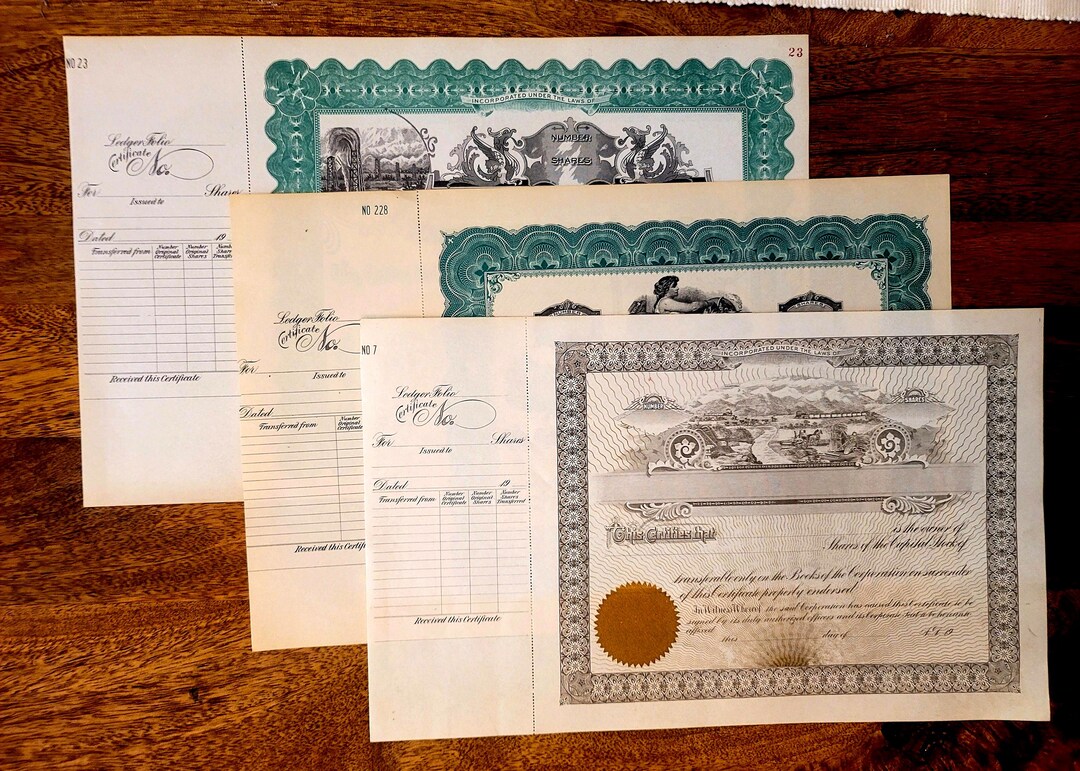 NO 23
23
INCORPORATED UNDER THE LAWS OF
NUMBER
SHARES
Ledger Folio
Certificate No.
For Shares
Issued to
Dated 19
Transferred from Number Original Certificate Number Original Shares
Received this Certificate
NO 228
NUMBER
SHARES
Ledger Folio
Certificate No.
For
Issued to
Dated
Transferred from Number Original Certificate
Received this Certifi
NO 7
Ledger Folio
Certificate No.
For Shares
Issued to
Dated 19
Transferred from Number Original Certificate Number Original Shares Number Shares Transferred
Received this Certificate
INCORPORATED UNDER THE LAWS OF
NUMBER
SHARES
This Certifies that is the owner of
Shares of the Capital Stock of
transferable only on the Books of the Corporation on surrender
of this Certificate properly endorsed.
In Witness Whereof the said Corporation has caused this Certificate to be
signed by its duly authorized officers and its Corporate Seal to be hereunto
affixed
this day of A.D. 19